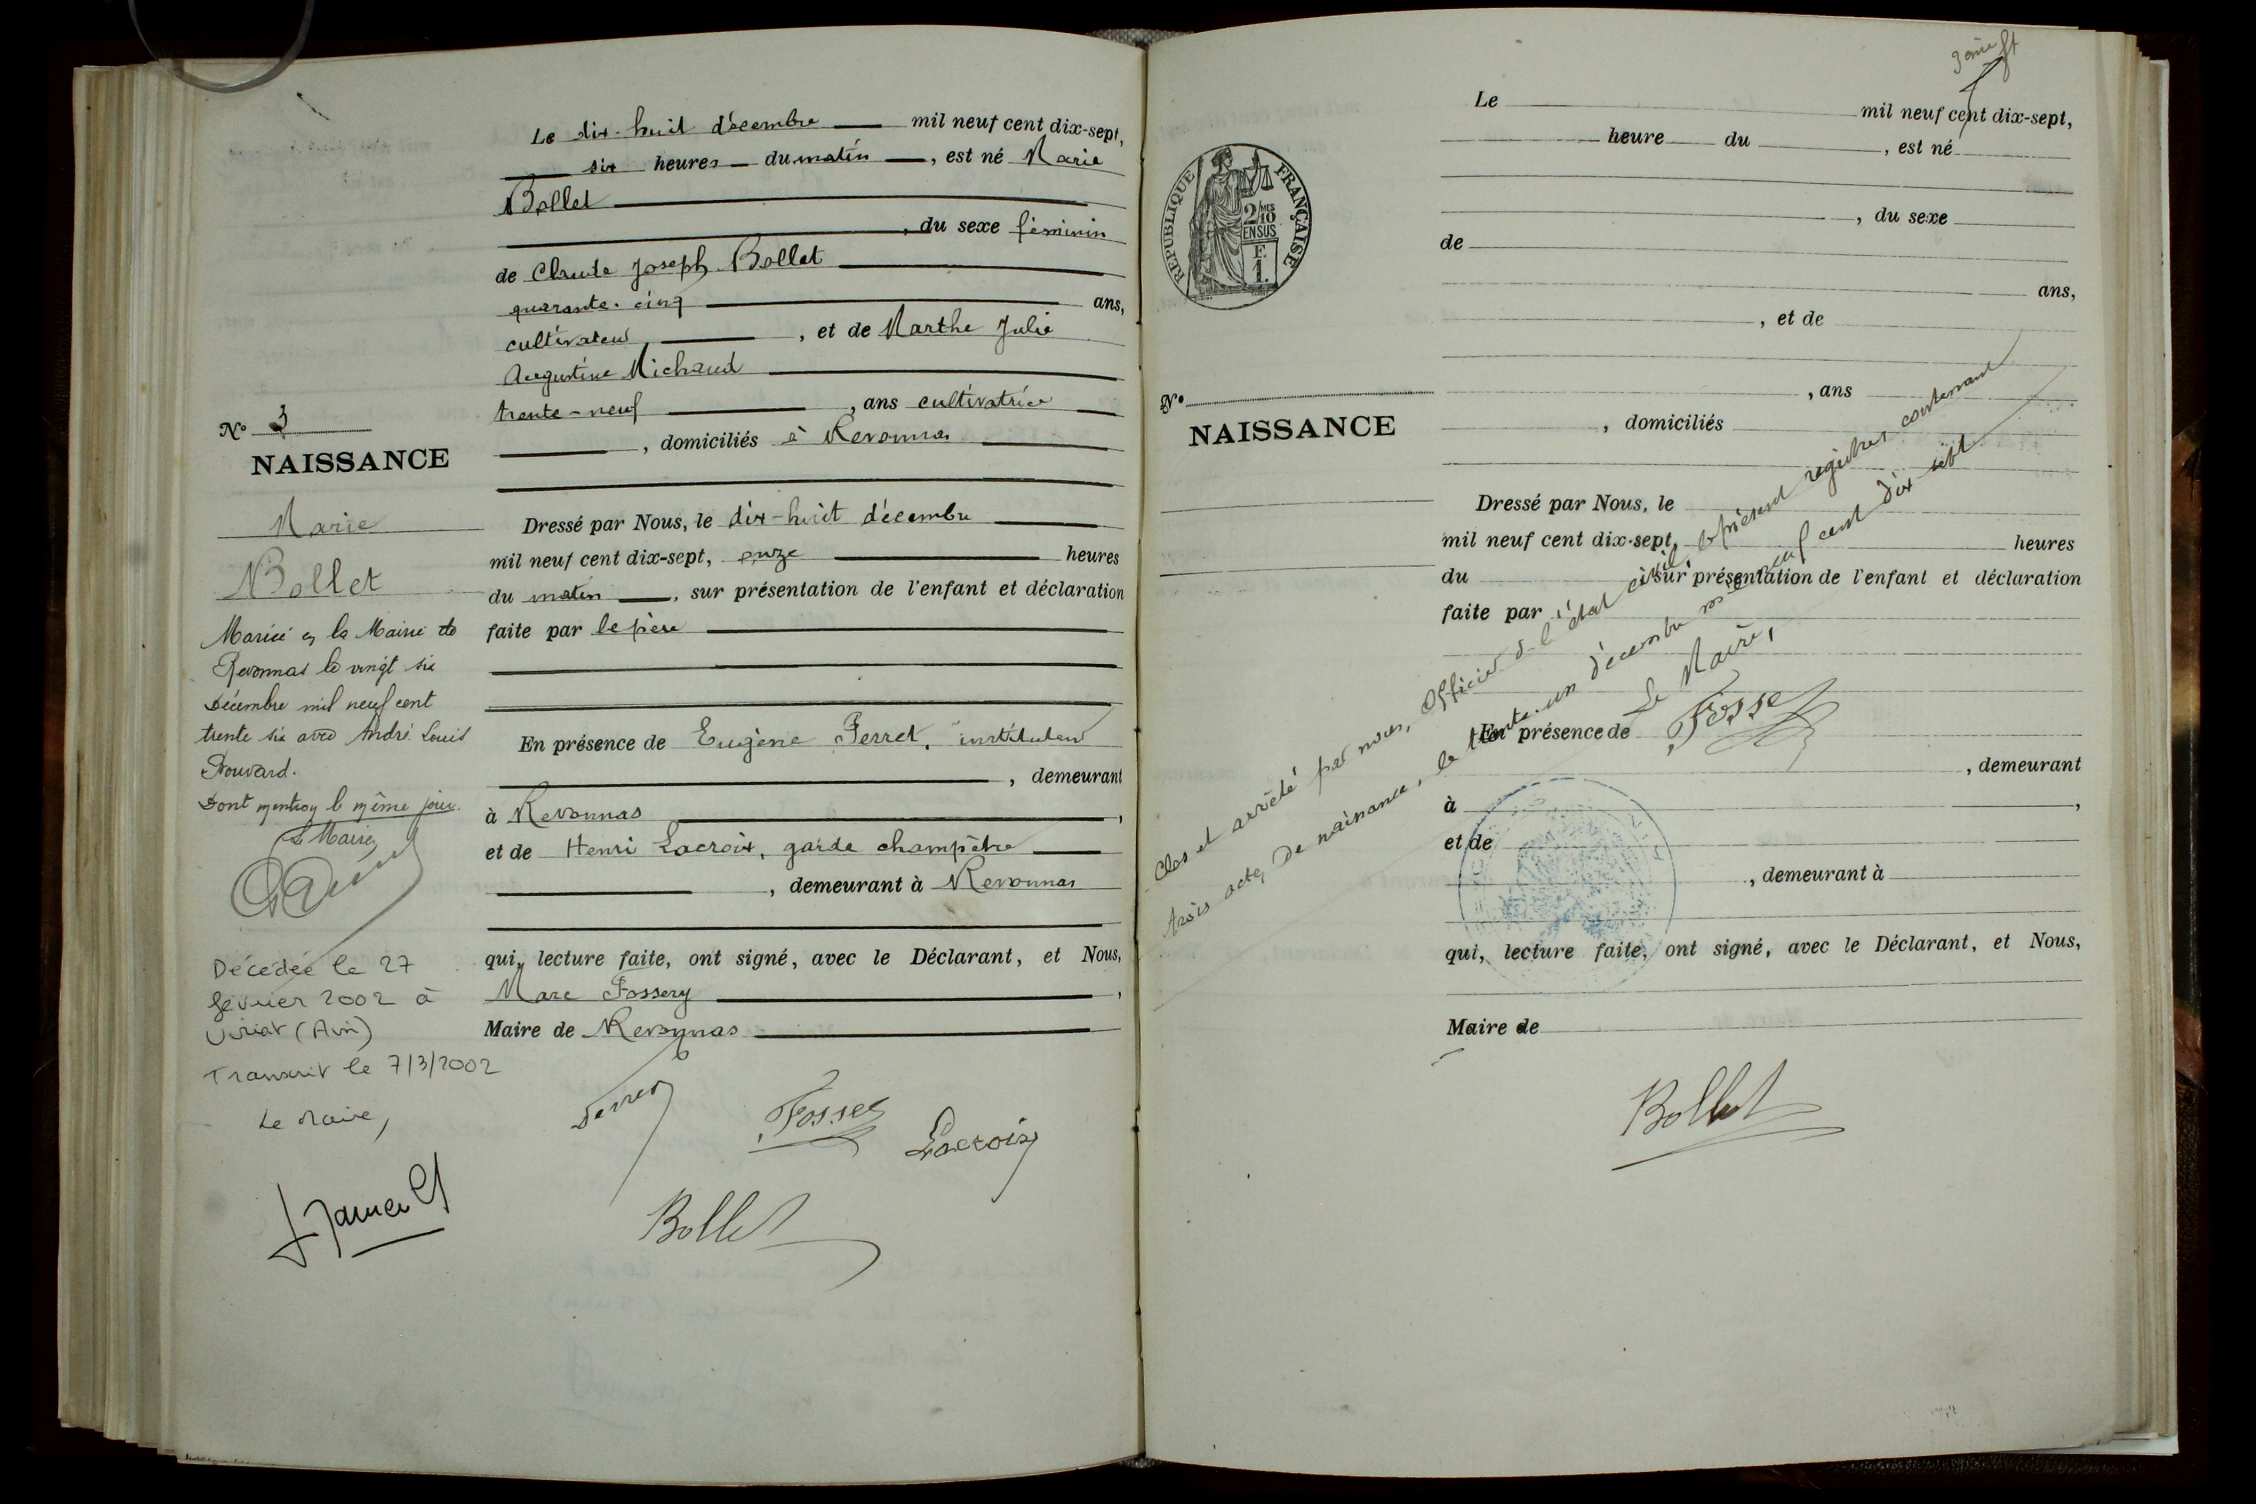 Le dix-huit décembre mil neuf cent dix-sept,
six heures du matin, est né Marie
Bollet
, du sexe féminin
de Claude Joseph Bollet
quarante-cinq ans,
cultivateur, et de Marthe Julie
Augustine Michaud
trente-neuf, ans cultivatrice
, domiciliés à Revonnas
Dressé par Nous, le dix-huit décembre
mil neuf cent dix-sept, onze heures
du matin, sur présentation de l'enfant et déclaration
faite par le père
En présence de Eugène Perret, instituteur
, demeurant
à Revonnas,
et de Henri Lacroix, garde champêtre
, demeurant à Revonnas
qui, lecture faite, ont signé, avec le Déclarant, et Nous,
Marc Fossery,
Maire de Revonnas
Lacroix
Bollet
N° 3
NAISSANCE
Marie
Bollet
Mariée en la Mairie de
Revonnas le vingt six
Décembre mil neuf cent
trente six avec André Louis
Dont mention le même jour.
Le Maire,
Décédée le 27
février 2002 à
Viriat (Ain)
Transcrit le 7/3/2002
Le Maire,
RÉPUBLIQUE FRANÇAISE
2/10 MES
EN SUS
F.
1.
N°
NAISSANCE
Le mil neuf cent dix-sept,
heure du, est né
, du sexe
de
ans,
, et de
, ans
, domiciliés
Dressé par Nous, le
mil neuf cent dix-sept, heures
du, sur présentation de l'enfant et déclaration
faite par
En présence de
, demeurant
à,
et de
, demeurant à
qui, lecture faite, ont signé, avec le Déclarant, et Nous,
Maire de
Clos et arrêté par nous, Officier de l'état civil, le présent registre contenant
trois actes de naissance, le trente-un décembre mil neuf cent dix sept
Le Maire,
Bollet